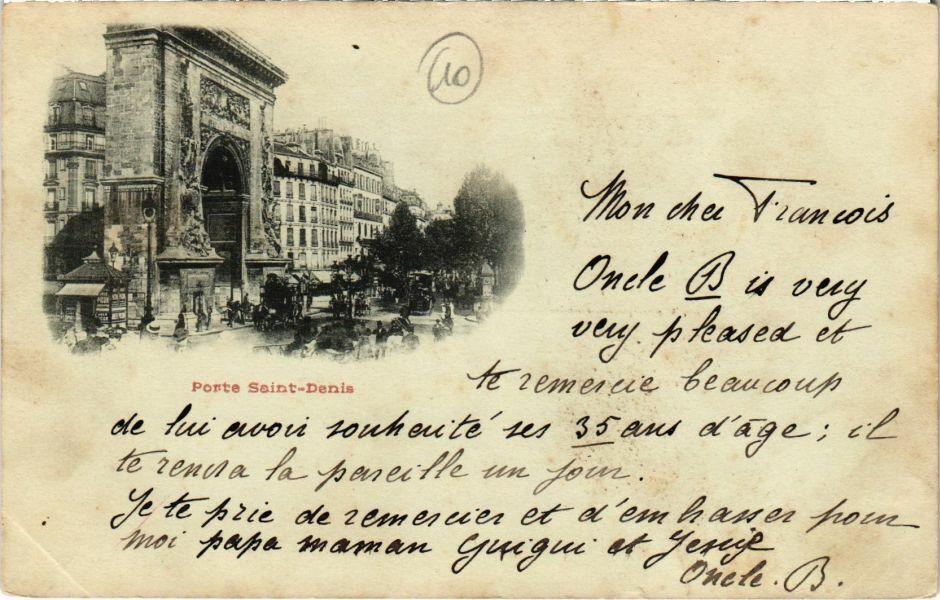 10
Mon cher Francois
Oncle B is very
very pleased et
te remercie beaucoup
Porte Saint-Denis
de lui avoir souhaité ses 35 ans d'âge; il
te rendra la pareille un jour.
Je te prie de remercier et d'embrasser pour
moi papa maman Guigui et
Oncle. B.